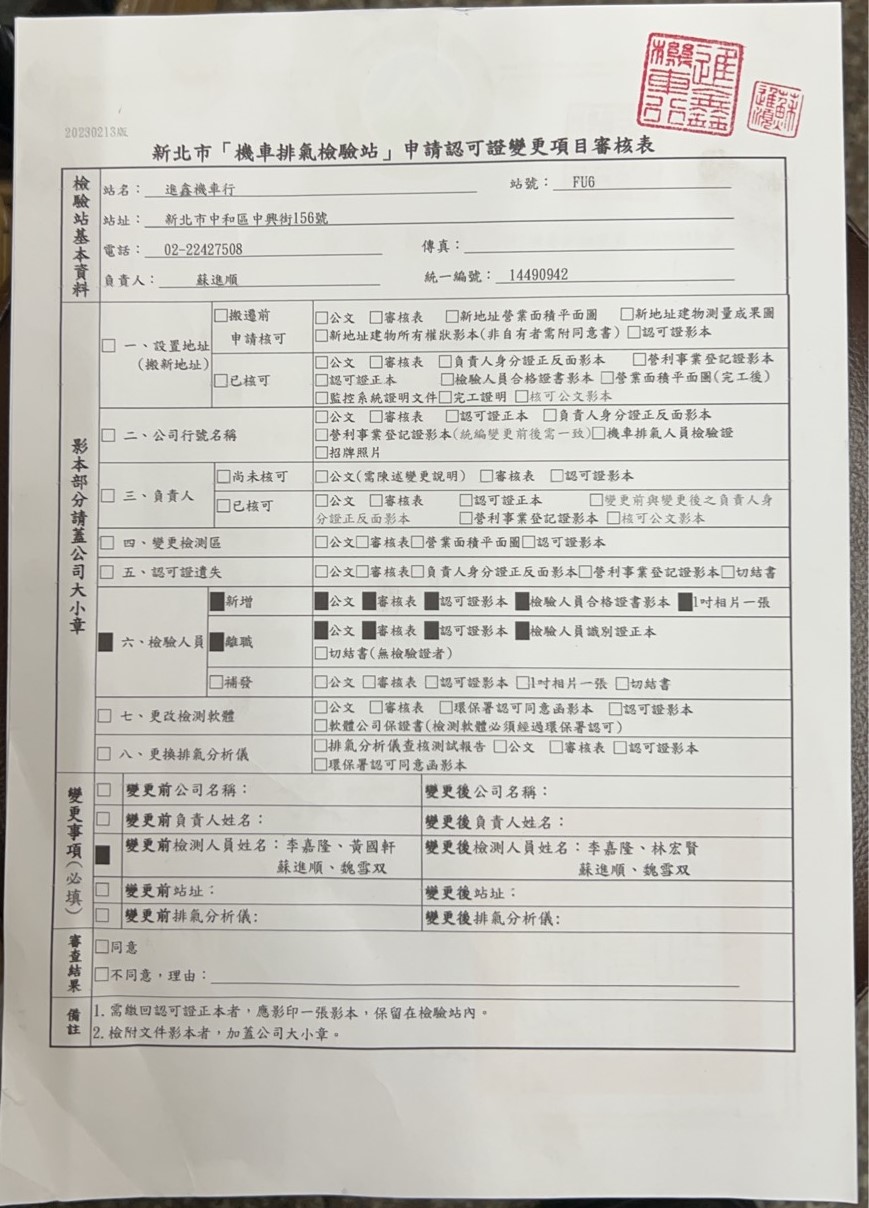 進鑫機車行
蘇進順
20230213版
新北市「機車排氣檢驗站」申請認可證變更項目審核表
檢驗站基本資料
站名： 進鑫機車行 站號： FU6
站址： 新北市中和區中興街156號
電話： 02-22427508 傳真：
負責人： 蘇進順 統一編號： 14490942
影本部分請蓋公司大小章
□ 一、設置地址
(搬新地址)
□搬遷前
申請核可
□公文 □審核表 □新地址營業面積平面圖 □新地址建物測量成果圖
□新地址建物所有權狀影本(非自有者需附同意書) □認可證影本
□已核可
□公文 □審核表 □負責人身分證正反面影本 □營利事業登記證影本
□認可證正本 □檢驗人員合格證書影本 □營業面積平面圖(完工後)
□監控系統證明文件□完工證明 □核可公文影本
□ 二、公司行號名稱
□公文 □審核表 □認可證正本 □負責人身分證正反面影本
□營利事業登記證影本(統編變更前後需一致)□機車排氣人員檢驗證
□招牌照片
□ 三、負責人
□尚未核可 □公文(需陳述變更說明) □審核表 □認可證影本
□已核可
□公文 □審核表 □認可證正本 □變更前與變更後之負責人身
分證正反面影本 □營利事業登記證影本 □核可公文影本
□ 四、變更檢測區 □公文□審核表□營業面積平面圖□認可證影本
□ 五、認可證遺失 □公文□審核表□負責人身分證正反面影本□營利事業登記證影本□切結書
■ 六、檢驗人員
■新增 ■公文 ■審核表 ■認可證影本 ■檢驗人員合格證書影本 ■1吋相片一張
■離職 ■公文 ■審核表 ■認可證影本 ■檢驗人員識別證正本
□切結書(無檢驗證者)
□補發 □公文 □審核表 □認可證影本 □1吋相片一張 □切結書
□ 七、更改檢測軟體
□公文 □審核表 □環保署認可同意函影本 □認可證影本
□軟體公司保證書(檢測軟體必須經過環保署認可)
□ 八、更換排氣分析儀
□排氣分析儀查核測試報告 □公文 □審核表 □認可證影本
□環保署認可同意函影本
變更事項(必填)
□ 變更前公司名稱： 變更後公司名稱：
□ 變更前負責人姓名： 變更後負責人姓名：
■ 變更前檢測人員姓名：李嘉隆、黃國軒 變更後檢測人員姓名：李嘉隆、林宏賢
蘇進順、魏雪双 蘇進順、魏雪双
□ 變更前站址： 變更後站址：
□ 變更前排氣分析儀： 變更後排氣分析儀：
審查結果
□同意
□不同意，理由：
備註
1.需繳回認可證正本者，應影印一張影本，保留在檢驗站內。
2.檢附文件影本者，加蓋公司大小章。